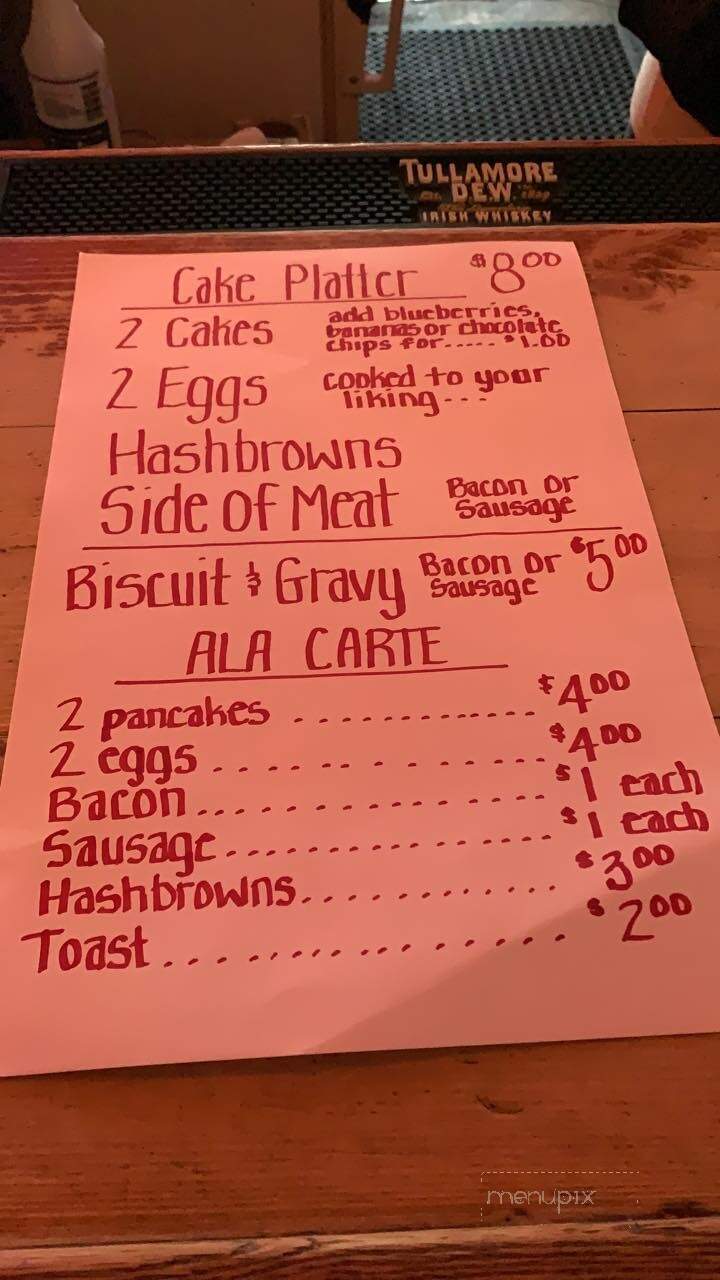 TULLAMORE
DEW
IRISH WHISKEY
Cake Platter $8.00
2 Cakes add blueberries,
bananas or chocolate
chips for----- $1.00
2 Eggs cooked to your
liking---
Hashbrowns
Side of Meat Bacon or
Sausage
Biscuit & Gravy Bacon or
Sausage $5.00
ALA CARTE
2 pancakes ............. $4.00
2 eggs ............. $4.00
Bacon............... $1 each
Sausage............... $1 each
Hashbrowns............ $3.00
Toast ............... $2.00
menupix